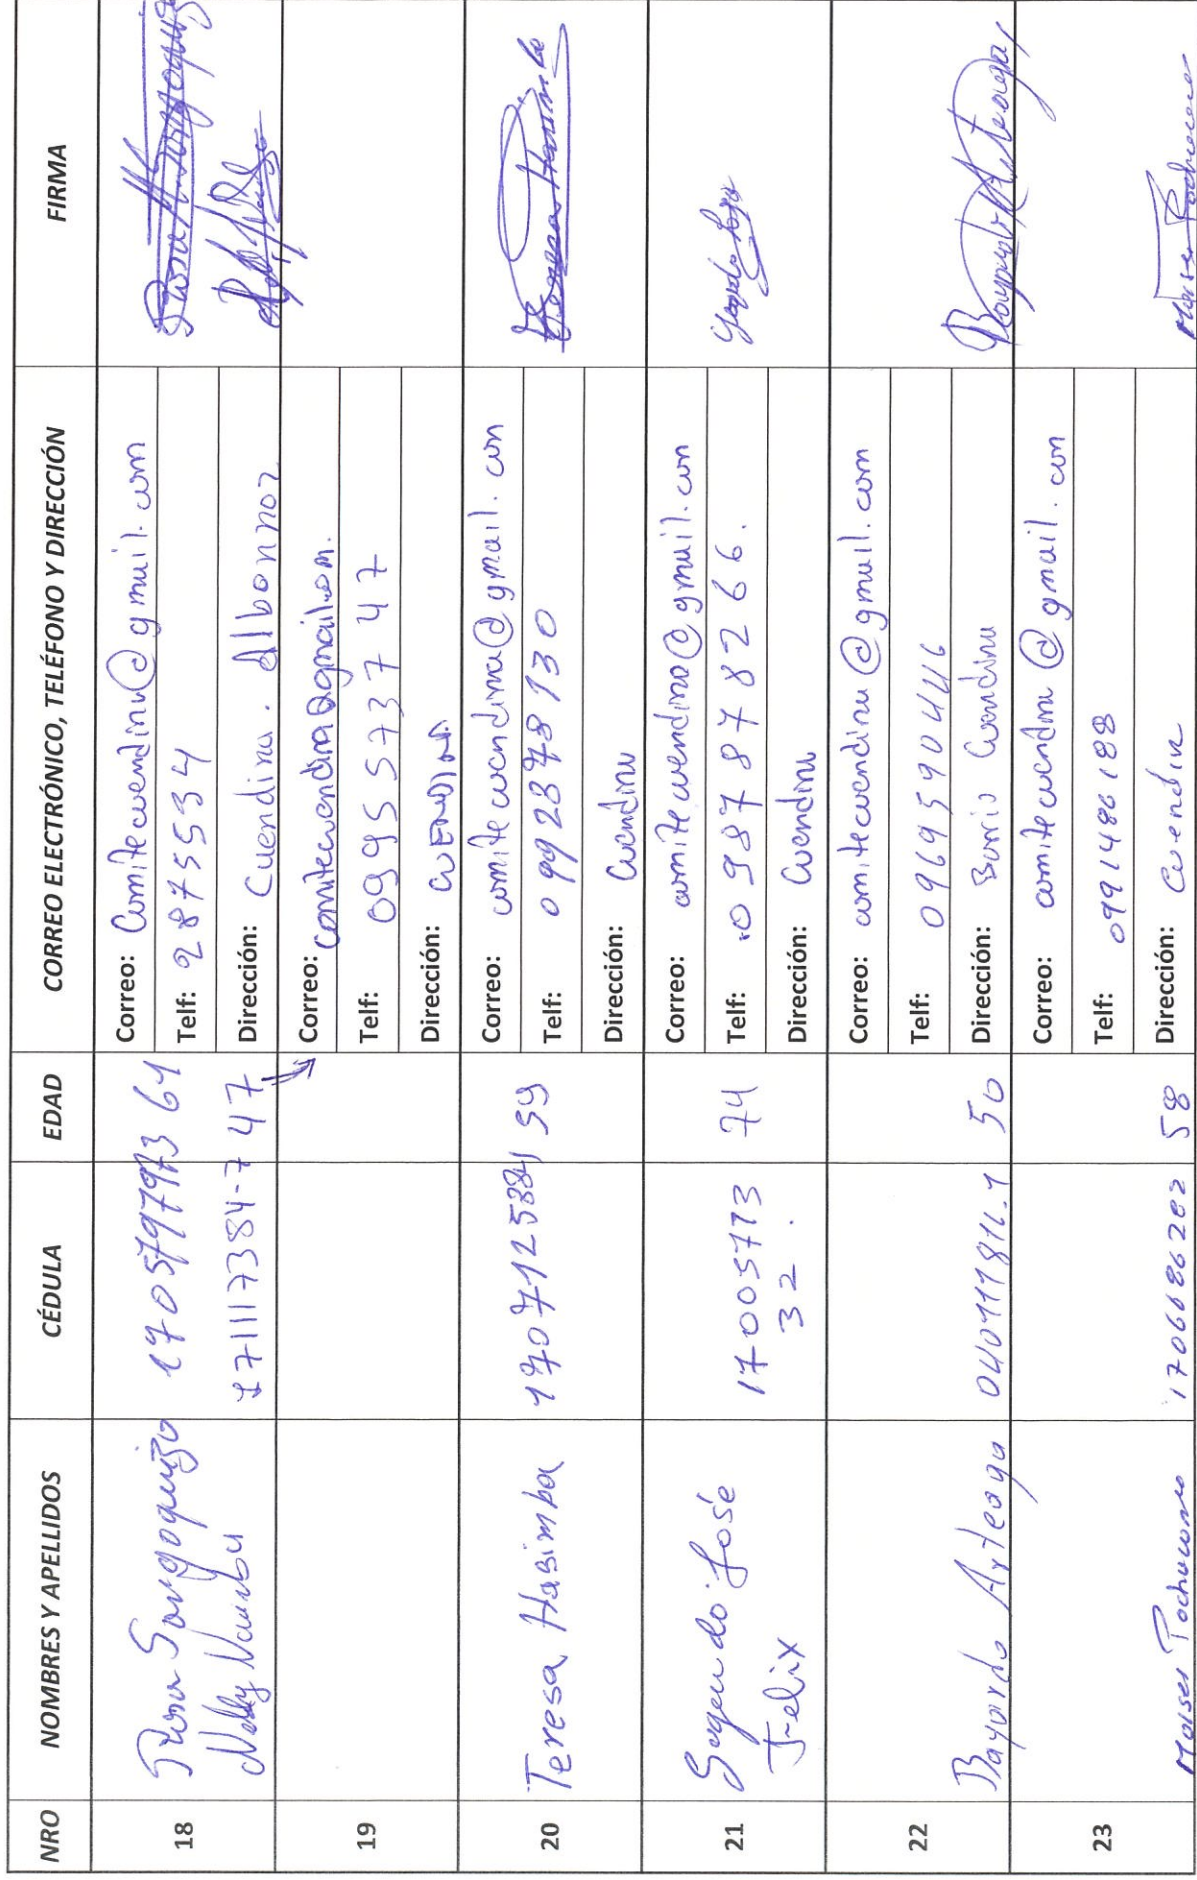 NRO NOMBRES Y APELLIDOS CÉDULA EDAD CORREO ELECTRÓNICO, TELÉFONO Y DIRECCIÓN FIRMA
18
Rosa Songoquiza 1705797973 61
Nelly 171117384-7 47
Correo: Comitecuendina@gmail.com
Telf: 2875534
Dirección: Cuendina. Albornoz
19
Correo: comitecuendina@gmail.com.
Telf: 0995573747
Dirección: CUENDINA.
20
Teresa Hasimba 1707125884 59
Correo: comitecuendina@gmail.com
Telf: 0992878130
Dirección: Cuendina
21
Segundo José
Felix
17005773
32.
74
Correo: comitecuendina@gmail.com
Telf: 0987878266.
Dirección: Cuendina
22
Bayardo Arteaga 50
Correo: comitecuendina@gmail.com
Telf: 0969590446
Dirección: Barrio Cuendina
23
Moises 1706686282 58
Correo: comitecuendina@gmail.com
Telf: 0991486188
Dirección: Cuendina